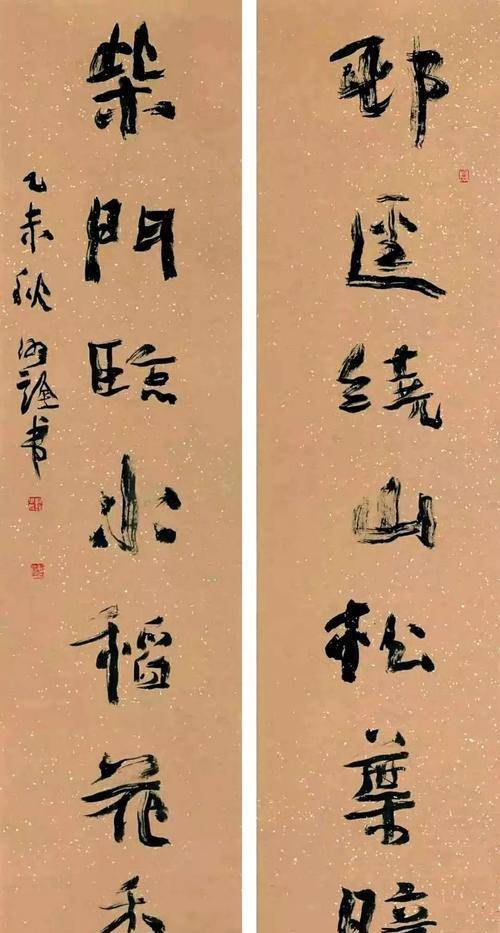 邨逕繞山松葉暗
柴門臨水稻花香
乙未秋書